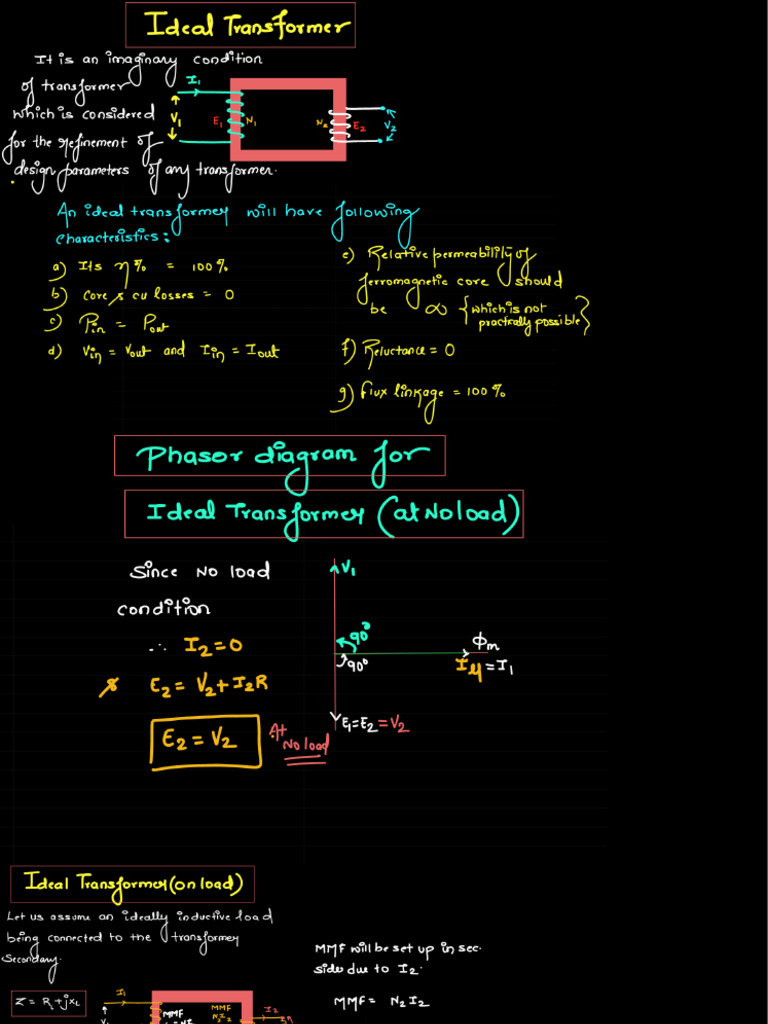 Ideal Transformer
It is an imaginary condition
of transformer
which is considered
for the refinement of
design parameters of any transformer.
I1
V1
E1
N1
N2
E2
V2
An ideal transformer will have following
characteristics:
a) Its η% = 100%
b) Core & cu losses = 0
c) Pin = Pout
d) Vin = Vout and Iin = Iout
e) Relative permeability of
ferromagnetic core should
be ∞ {which is not
practically possible}
f) Reluctance = 0
g) Flux linkage = 100%
Phasor diagram for
Ideal Transformer (at No load)
Since No load
condition
∴ I2 = 0
& E2 = V2 + I2R
E2 = V2
At
No load
V1
90°
90°
ϕm
Iμ = I1
E1 = E2 = V2
Ideal Transformer (on load)
Let us assume an ideally inductive load
being connected to the transformer
Secondary.
MMF will be set up in sec.
side due to I2.
MMF = N2I2
I1
MMF
N2I2
I2
MMF
V1